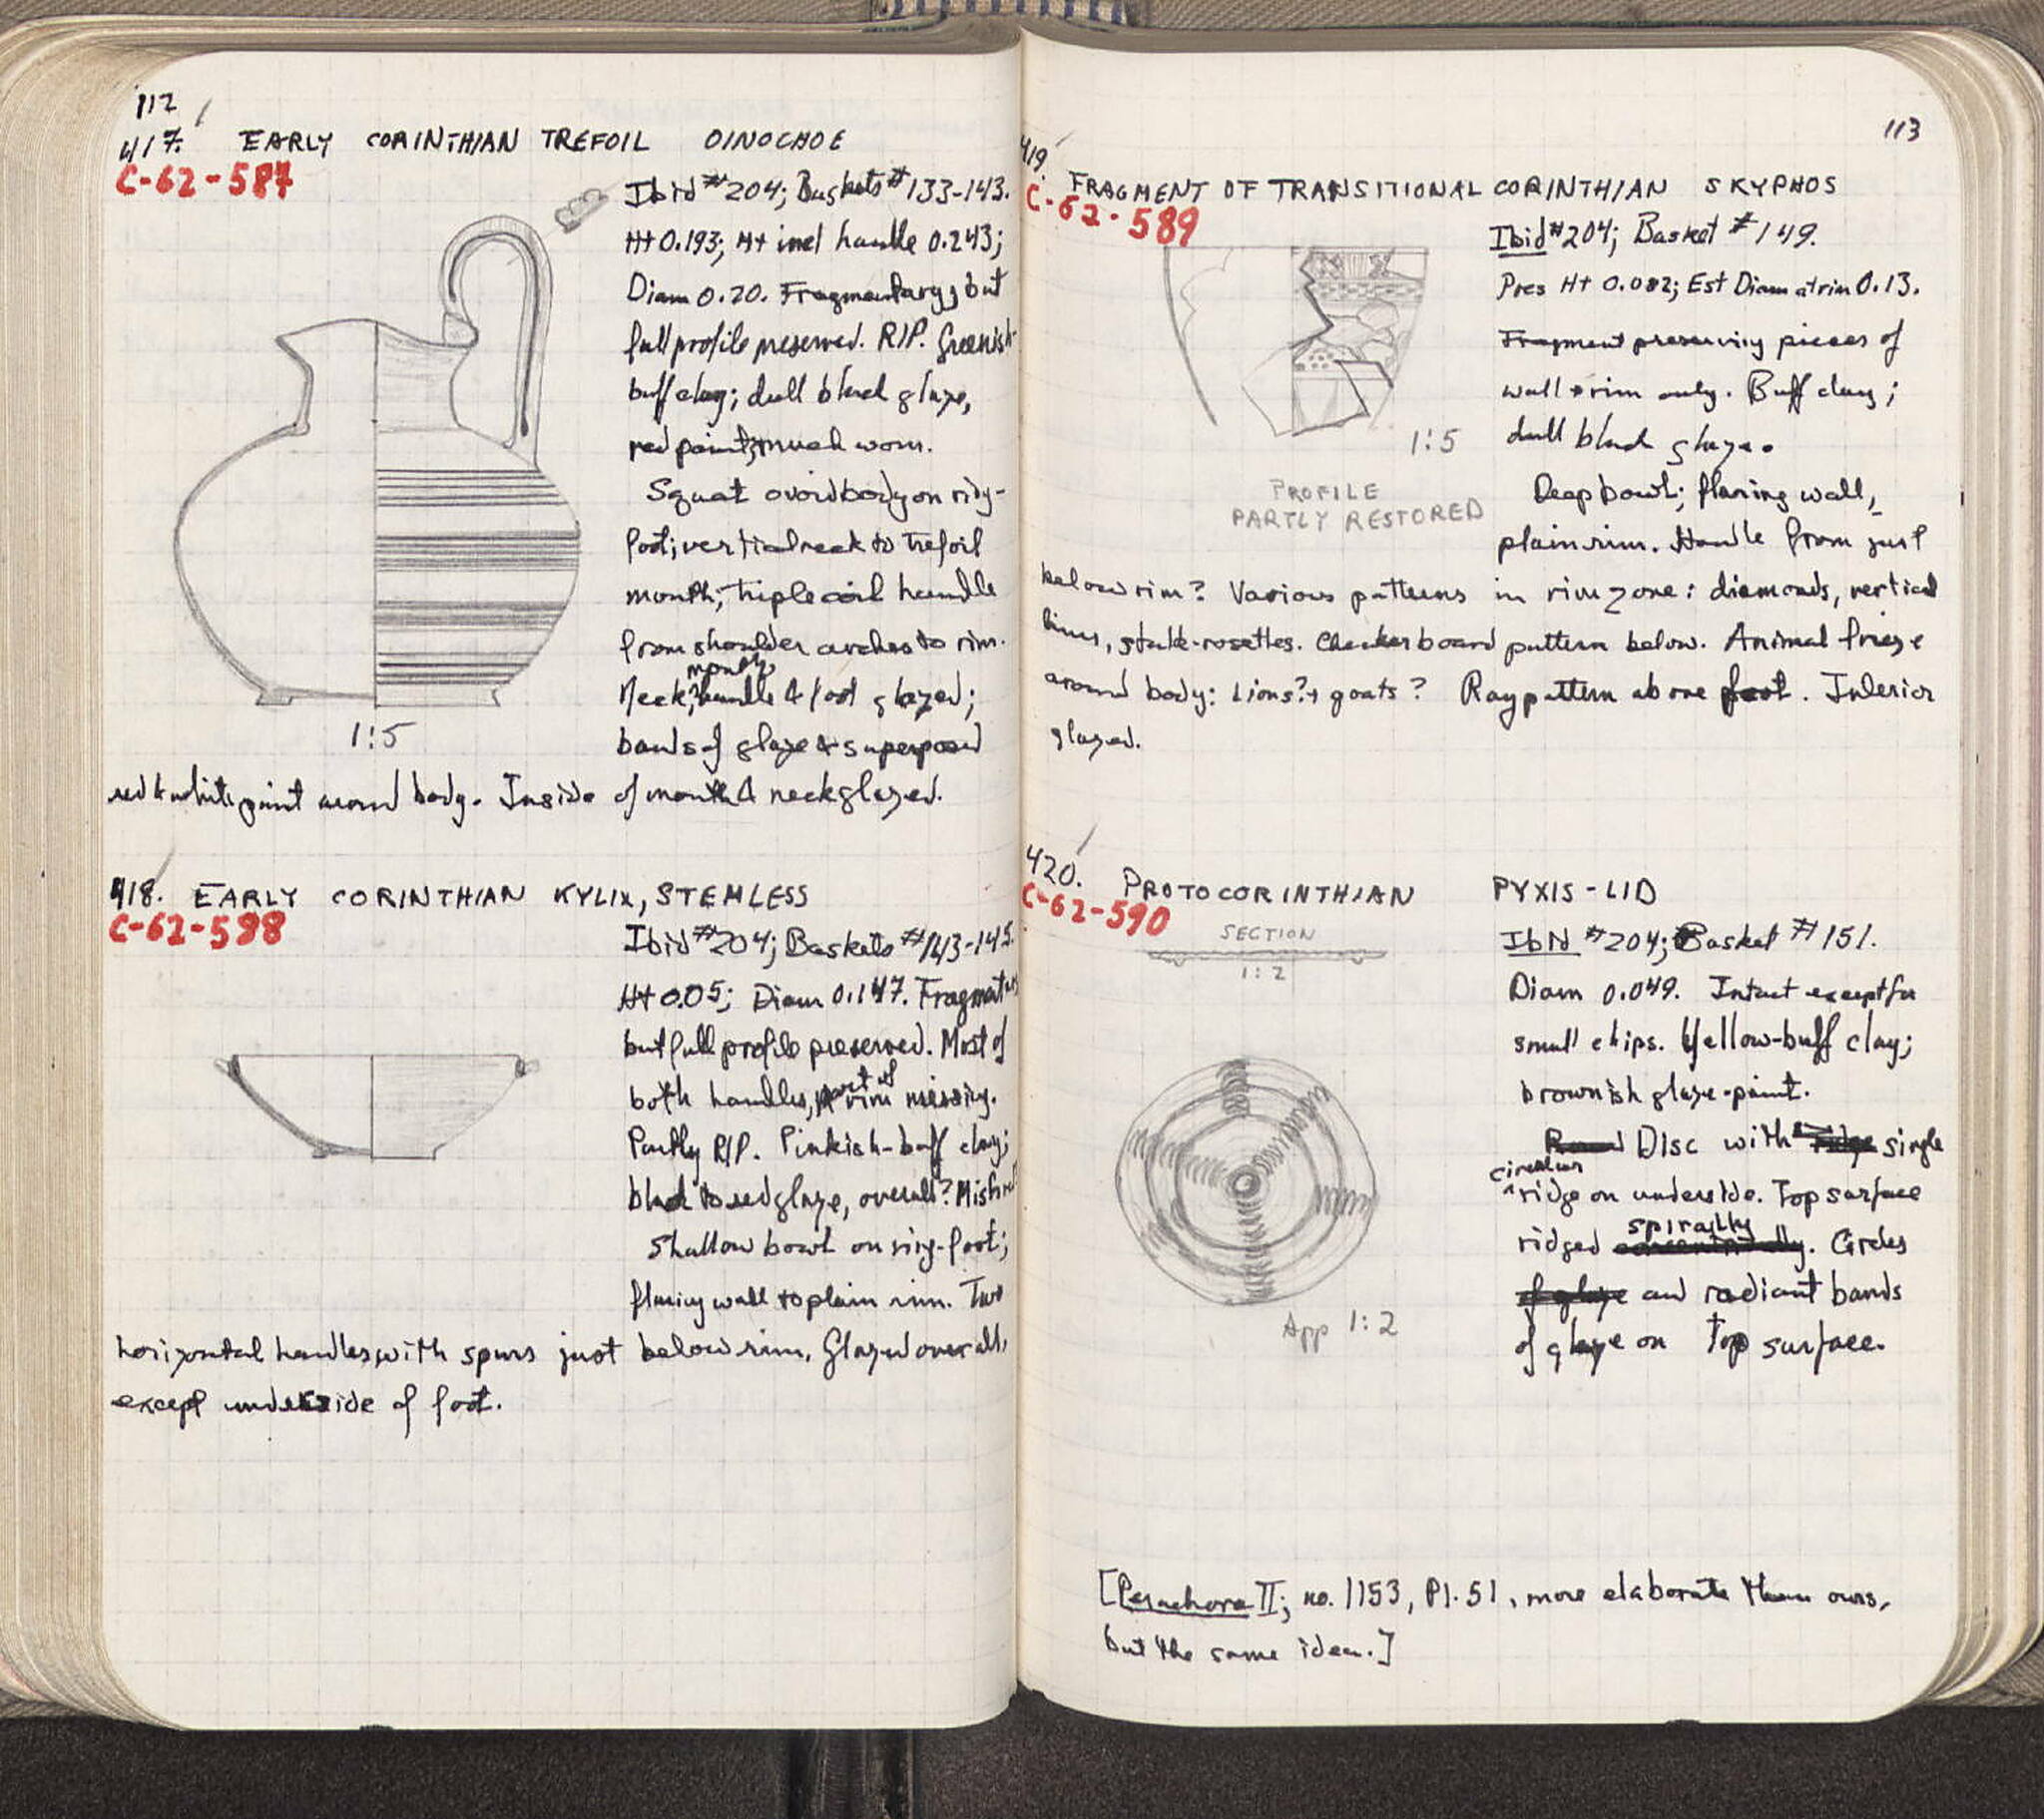 112
417. EARLY CORINTHIAN TREFOIL OINOCHOE
C-62-587
Ibid #204; Baskets #133-143.
Ht 0.193; Ht incl handle 0.243;
Diam 0.20. Fragmentary, but
full profile preserved. R/P. Greenish
buff clay; dull black glaze,
red paint, much worn.
Squat ovoid body on ring-
foot; vertical neck to trefoil
mouth; triple coil handle
from shoulder arches to rim.
mouth,
Neck, handle & foot glazed;
bands of glaze & superposed
red & white paint around body. Inside of mouth & neck glazed.
1:5
418. EARLY CORINTHIAN KYLIX, STEMLESS
C-62-588
Ibid #204; Baskets #143-145.
Ht 0.05; Diam 0.147. Fragmentary
but full profile preserved. Most of
both handles, part of rim missing.
Partly R/P. Pinkish-buff clay;
black to red glaze, overall? Misfired
Shallow bowl on ring-foot;
flaring wall to plain rim. Two
horizontal handles, with spurs just below rim. Glazed over all,
except underside of foot.
113
419. FRAGMENT OF TRANSITIONAL CORINTHIAN SKYPHOS
C-62-589
Ibid #204; Basket #149.
Pres Ht 0.082; Est Diam at rim 0.13.
Fragment preserving pieces of
wall & rim only. Buff clay;
dull black glaze.
1:5
PROFILE
PARTLY RESTORED
Deep bowl; flaring wall,
plain rim. Handle from just
below rim? Various patterns in rim zone: diamonds, vertical
lines, stalk-rosettes. Checkerboard pattern below. Animal frieze
around body: Lions? & goats? Ray pattern above foot. Interior
glazed.
420. PROTOCORINTHIAN PYXIS-LID
C-62-590
SECTION
1:2
Ibid #204; Basket #151.
Diam 0.049. Intact except for
small chips. Yellow-buff clay;
brownish glaze-paint.
Disc with single
circular
ridge on underside. Top surface
spirally
ridged concentrically. Circles
of glaze and radiant bands
of glaze on top surface.
App 1:2
[Perachora II; no. 1153, Pl. 51, more elaborate than ours,
but the same idea.]